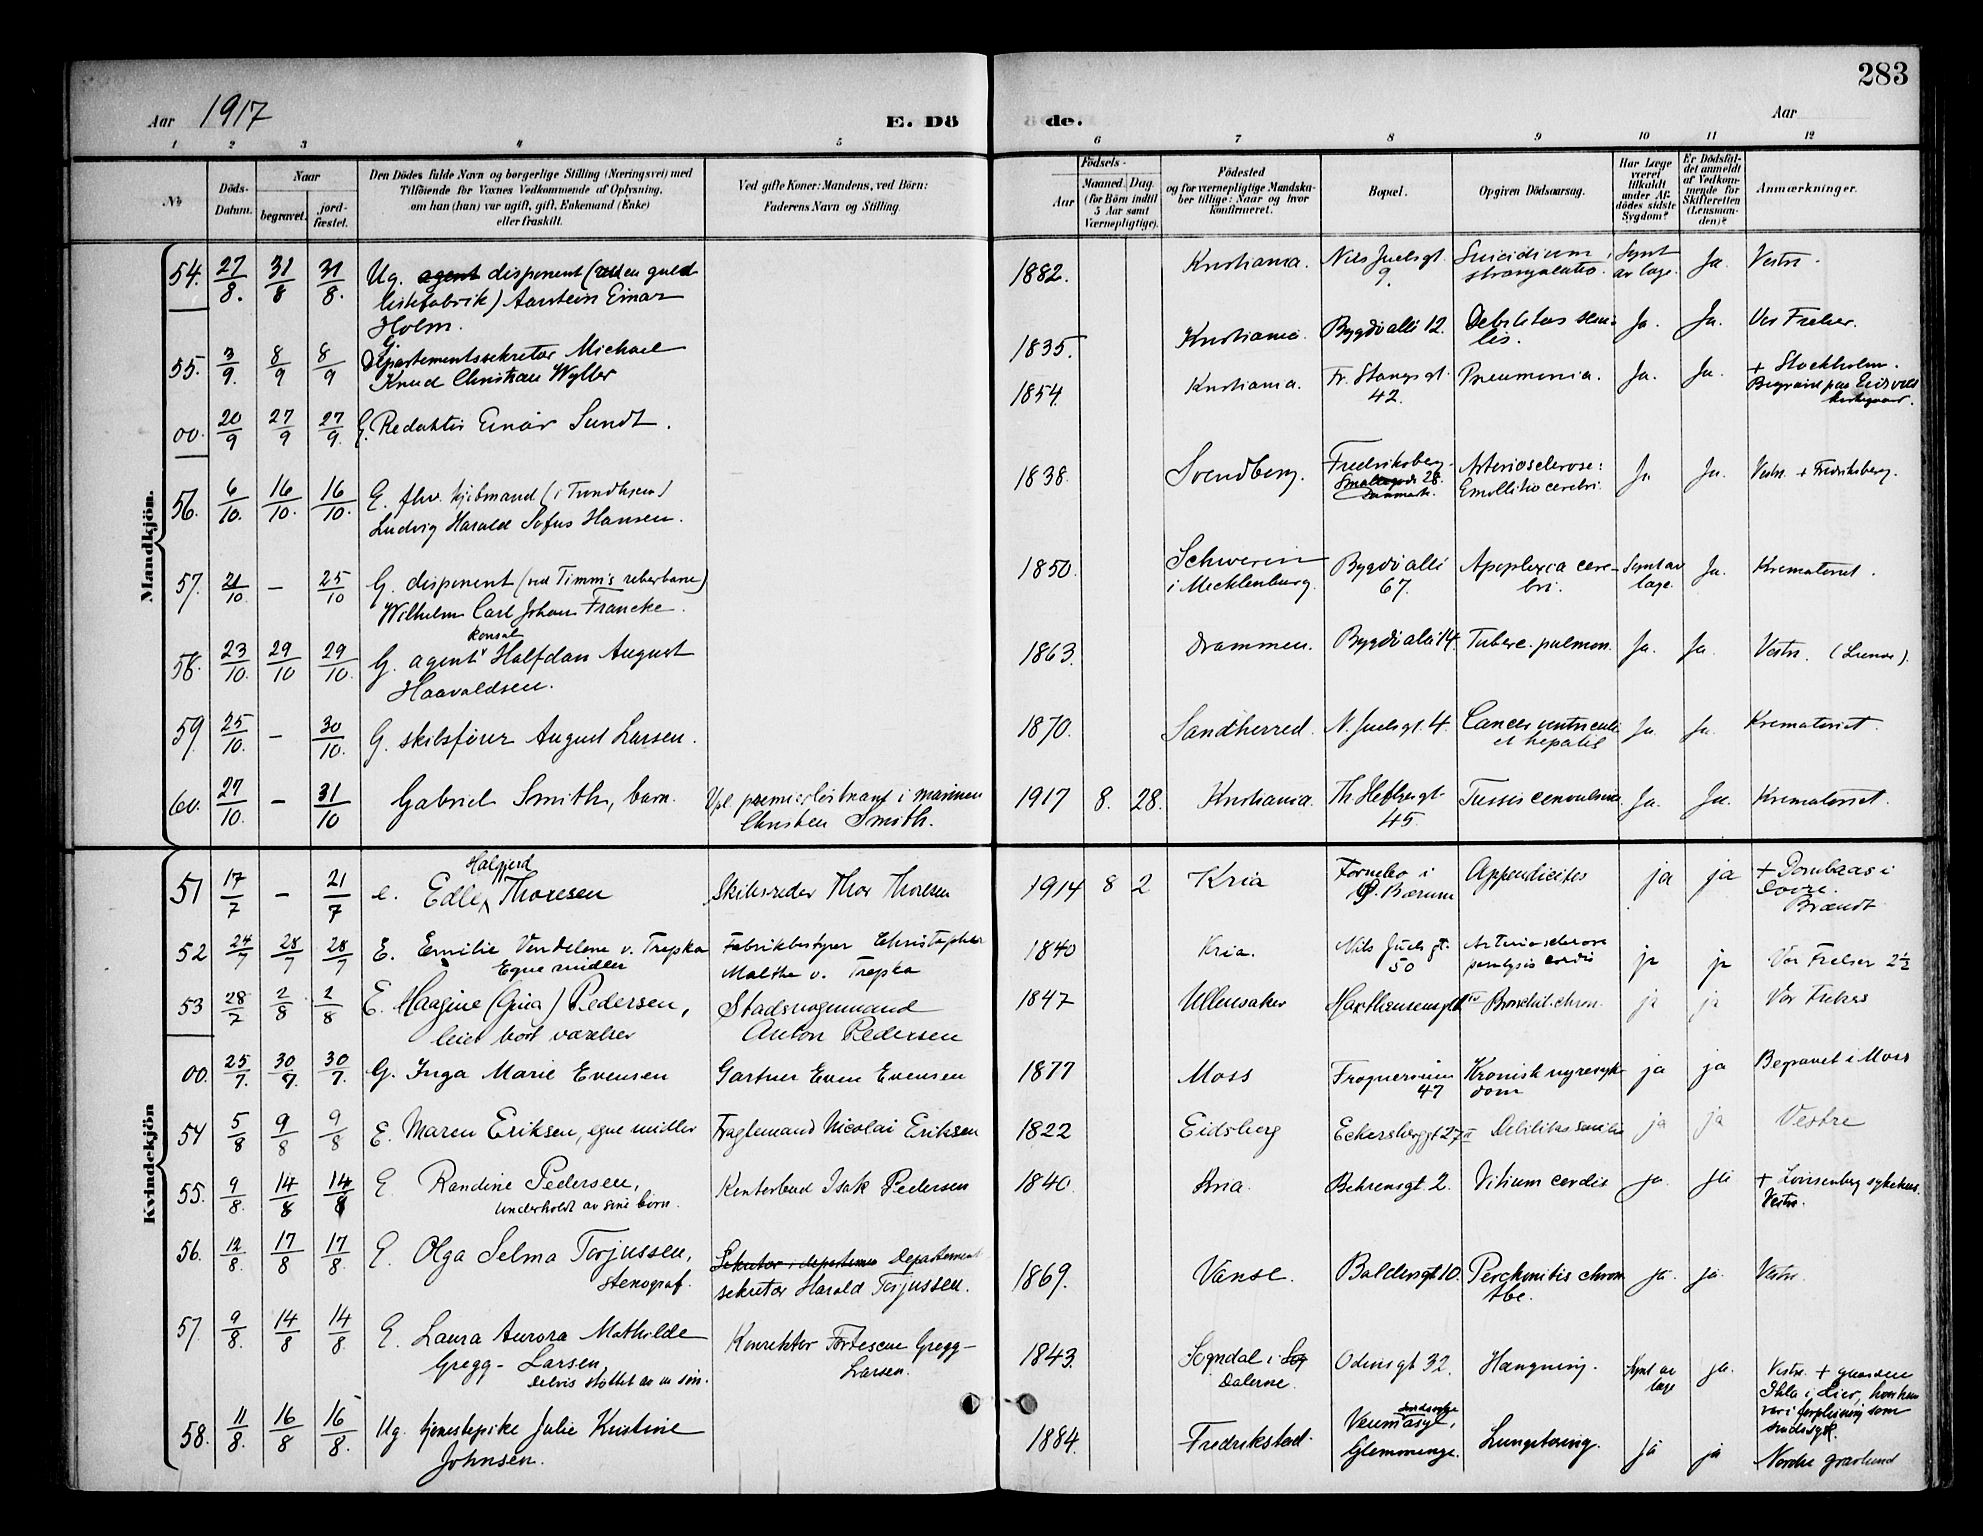 283
Aar 1917
E. Dö
de.
Aar
1 2 3 4 5 6 7 8 9 10 11 12
No
Döds-Datum.
Naar
begravet.
jord-fæstet.
Den Dödes fulde Navn og borgerlige Stilling (Næringsvei) med
Tilföiende for Voxnes Vedkommende af Oplysning,
om han (hun) var ugift, gift, Enkemand (Enke)
eller fraskilt.
Ved gifte Koner: Mandens, ved Börn:
Faderens Navn og Stilling.
Födsels-
Aar
Maaned. Dag
(for Börn indtil
5 Aar samt
Værnepligtige).
Födested
og for værnepligtige Mandska-
ber tillige: Naar og hvor
konfirmeret.
Bopæl.
Opgiven Dödsaarsag.
Har Læge
været
tilkaldt
under Af-
dödes sidste
Sygdom?
Er Dödsfal-
det anmeldt
af Vedkom-
mende for
Skifteretten
(Lensman-
den)?
Anmærkninger.
Mandkjön.
54. 27/8. 31/8 31/8. Ug. agent disponent (ved en guld
listefabrik) Aarstein Einar
Holm.
1882. Kristiania. Nils Juelsgt. 9. Suicidium, strangulatio. Synt av læge. Ja Vestre.
55. 3/9. 8/9 8/9 G. Departementssekretær Michael
Knud Christian Wyller
1835. Kristiania. Bygdö allé 12. Debilitas senilis. Ja. Ja. Vor Frelser.
00. 20/9 27/9 27/9. G. Redaktör Einar Sundt.
1854. Kristiania. Fr. Stangsgt. 42. Pneumonia. Ja. Ja. + Stockholm.
Begravet paa Eidsvold
kirkegaard.
56. 6/10. 16/10. 16/10. E. fhv. kjöbmand (i Trondhjem)
Ludvig Harald Sofus Hansen.
1838. Svendborg. Fredriksberg. Smallegade 28. Danmark. Arteriosclerose: Emollitio cerebri. Ja Ja. Vestre + Fredriksberg.
57. 21/10. - 25/10 G. disponent (ved Timm's reberbane)
Wilhelm Carl Johan Francke.
1850. Schwerin i Mecklenburg. Bygdö allé 67. Apoplexia cerebri. Synt av læge. Ja. Krematoriet.
58. 23/10. 29/10 29/10. G. agent konsul Halfdan August
Haavaldsen.
1863. Drammen. Bygdö allé 14. Tuberc. pulmon. Ja. Ja. Vestre.
59. 25/10. - 30/10. G. skibsförer August Larsen.
1870. Sandherred. N. Juelsgt. 4. Cancer ventriculi et hepatis Ja. Ja. Krematoriet.
60. 27/10. - 31/10 Gabriel Smith, barn. Vpl. premierlöitnant i marinen
Christen Smith.
1917 8. 28. Kristiania. Th. Heftyesgt. 45. Tussis convulsiva Ja. Ja. Krematoriet.
Kvindekjön
51 17/7 - 21/7 e. Edle Halgjerd Thoresen Skibsreder Thor Thoresen
1914 8 2 Kria Fornebo i Ø. Bærum Appendicites ja ja + Dombaas i
Dovre.
Brændt
52 24/7 28/7 28/7 E. Emilie Vendelene v. Trepka
Egne midler
Fabrikbestyrer Christopher
Malthe v. Trepka
1840 Kria. Nils Juels gt. 50 Arteriosclerose paralysis cordis ja ja Vor Frelser 2½
53 28/7 2/8 2/8 E. Maagine (Gina) Pedersen,
leiet bort værelser
Stadsvognmand
Anton Pedersen
1847 Ullensaker Bronchit. chron. ja ja Vor Frelsers
00. 25/7. 30/7. 30/7. G. Inga Marie Evensen Gartner Even Evensen
1877 Moss Frognerveien 47 Kronisk nyresykdom ja ja Begravet i Moss
54 5/8 9/8 9/8 E. Maren Eriksen, egne midler Fragtemand Nicolai Eriksen
1822 Eidsberg Eckersberggt 27 II Debilitas senilis ja ja Vestre
55. 9/8. 14/8 14/8 E Randine Pedersen,
underholdt av sine börn.
Kontorbud Isak Pedersen
1840. Kria. Behrensgt 2. Vitium cordis ja. ja + Lovisenberg sykehus.
Vestre.
56. 12/8. 17/8 17/8. E Olga Selma Torjussen,
stenograf.
Sekretær i departemen Departement
sekretær Harald Torjussen.
1869. Vanse. Baldersgt 10. Peritonitis chron tbc. ja. ja. Vestre.
57. 9/8. 14/8 14/8. E. Laura Aurora Mathilde
Gregg-Larsen,
delvis stöttet av en sön.
Konrektor Fortescue Gregg-
Larsen.
1843. Sogndal i Sog Dalerne. Odinsgt 32. Hængning. Synt av læge ja. Vestre. + gaarden
i Lier, hvor hun
var i forpleining som
sindssyk.
58. 11/8. 16/8 16/8. Ug. tjenestepike Julie Kristine
Johnsen.
1884. Fredrikstad. Veum sindssyke asyl, Glemminge. Lungetæring. ja ja Nordre gravlund